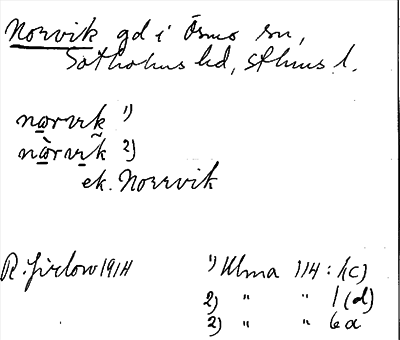 Norrvik gd i Ösmo sn,
Sotholms hd, Sthlms l.
nọrvik 1)
nọ̀rvịk̃ 2)
ek. Norrvik
R. Jirlow 1914
1) Ulma 114: 1(c)
2) " " 1(d)
2) " " 6a